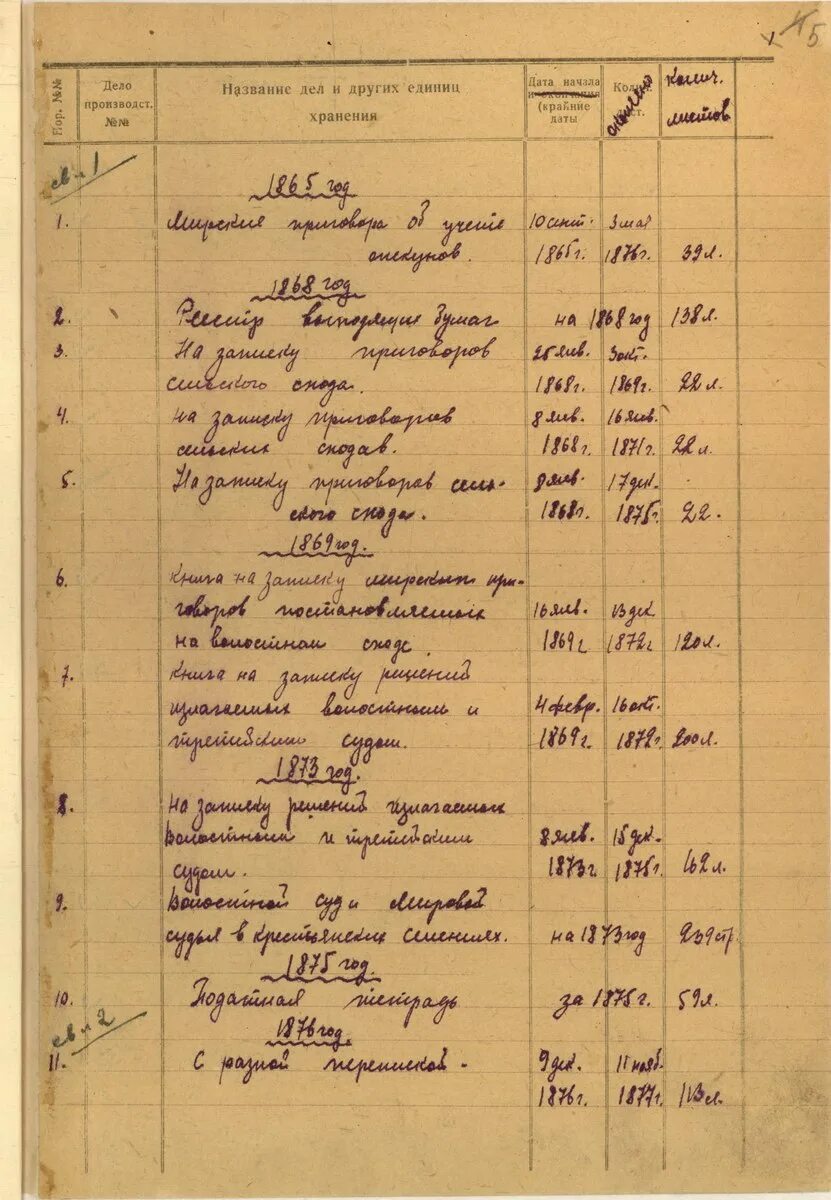 5
Пор. №№
Дело производст. №№
Название дел и других единиц хранения
Дата начала и окончания (крайние даты
окончан
Колич. листов
св. 1
1865 год
1. Мирские приговора об учете 10 сент. 3 мая
опекунов. 1865г. 1876г. 39 л.
1868 год
2. Реестр выходящих бумаг на 1868 год 138 л.
3. На записку приговоров 25 янв. 3 окт.
сельского схода. 1868г. 1869г. 22 л.
4. На записку приговоров 8 янв. 16 янв.
сельских сходав. 1868г. 1871г. 22 л.
5. На записку приговоров сель- 8 янв. 17 дек.
ского схода. 1868г. 1875г. 22.
1869 год.
6. Книга на записку мирских при-
говоров постановляемых 16 янв. 13 дек
на волостном сходе. 1869г 1872г 120 л.
7. Книга на записку решений
излагаемых волостным и 4 февр. 16 окт.
третейским судом. 1869г 1872г. 200 л.
1873 год.
8. На записку решений излагаемых
волостным и третейским 8 янв. 15 дек.
судом. 1873г 1875г. 162 л.
9. Волостной суд и Мировой
судья в крестьянских селениях. на 1873 год 239 стр.
1875 год.
10. Податная тетрадь за 1875г. 59 л.
св. 2
1876 год
11. С разной перепиской. 9 дек. 11 нояб.
1876г. 1877г. 113 л.